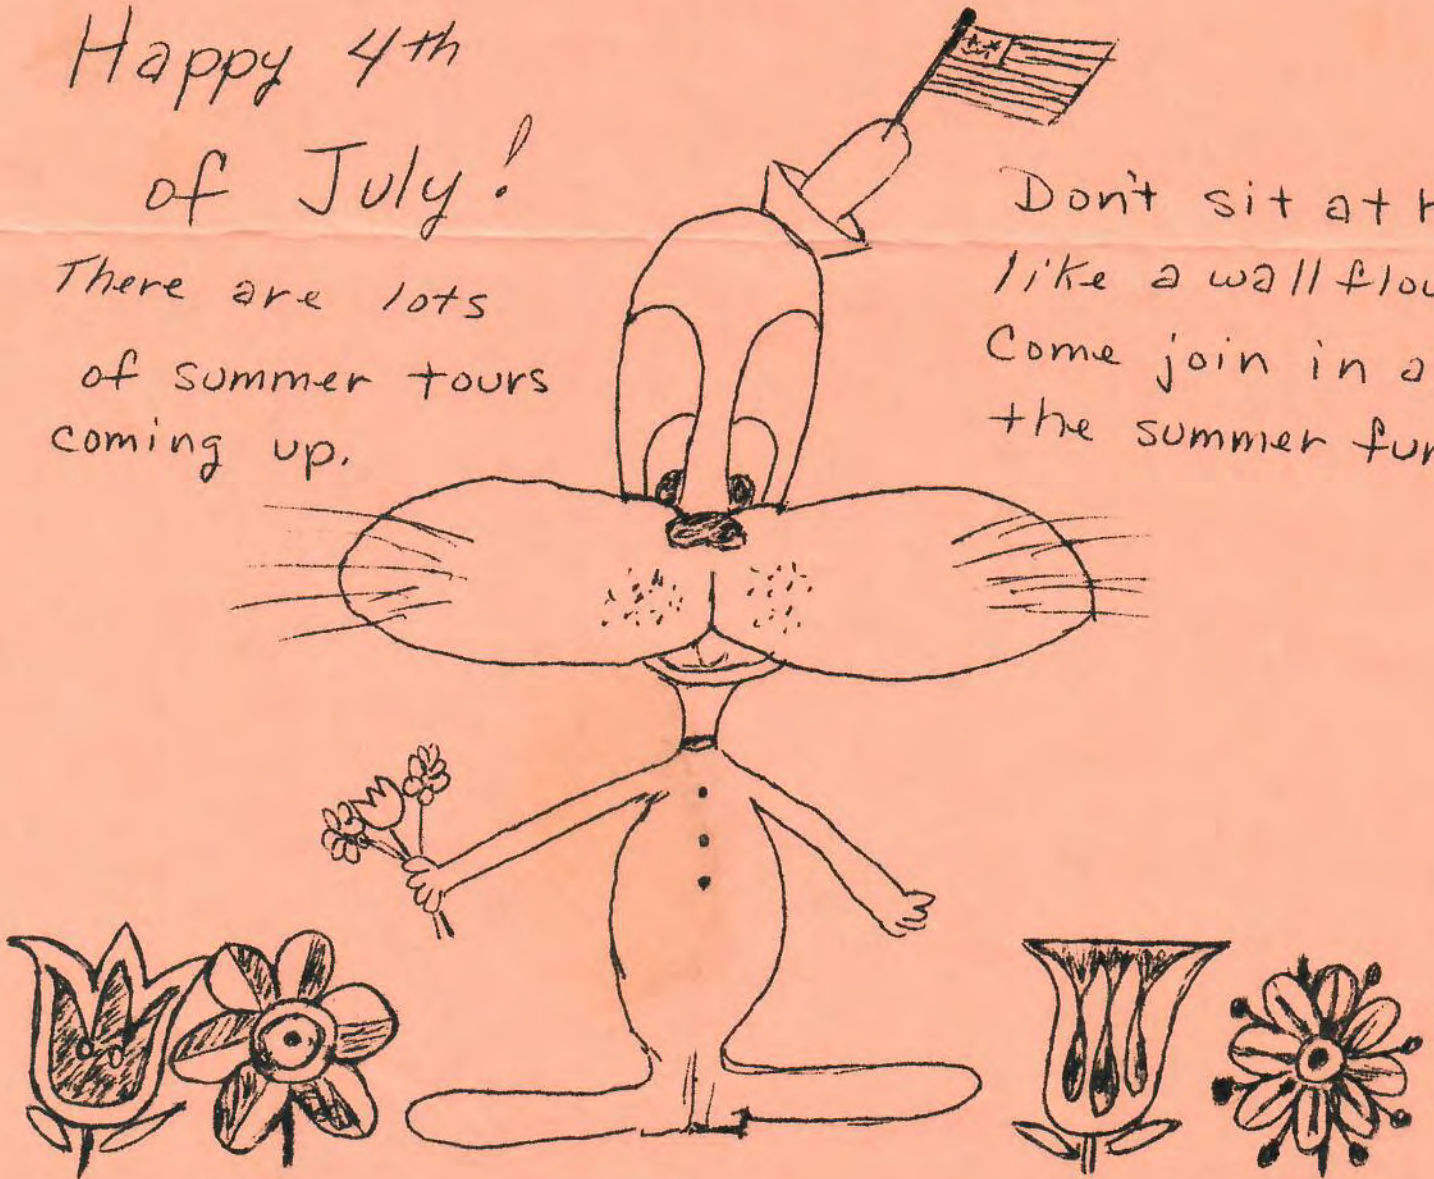 Happy 4th
of July!
There are lots
of summer tours
coming up.
Don't sit at
like a
Come join in
the summer